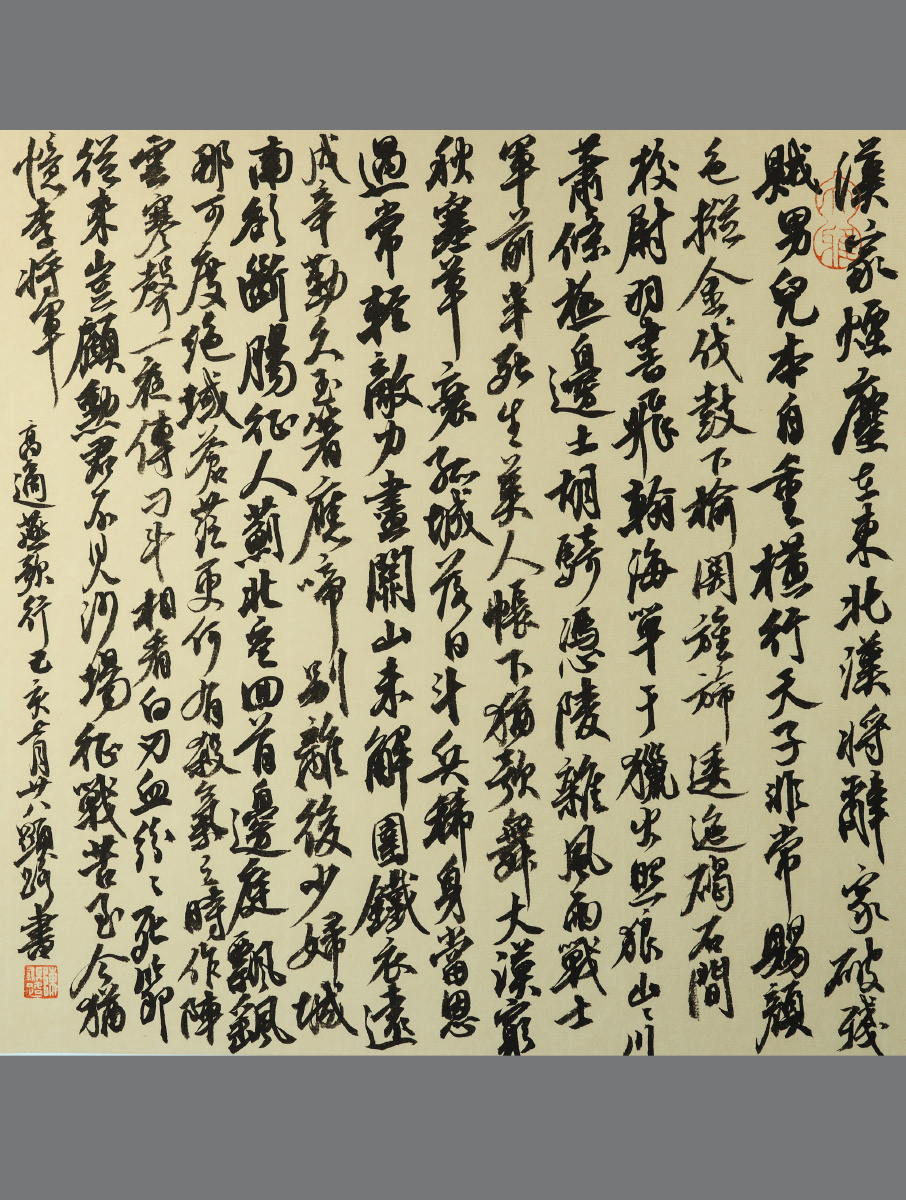 漢家煙塵在東北漢将辭家破殘
賊男兒本自重橫行天子非常賜顏
色摐金伐鼓下榆関旌旆逶迤碣石間
校尉羽書飛翰海單于獵火照狼山々川
蕭條極邊土胡騎憑陵雜風雨戰士
軍前半死生美人帳下猶歌舞大漠窮
秋塞草衰孤城落日斗兵稀身當恩
遇常輕敵力盡關山未解圍鐵衣遠
戍辛勤久玉箸應啼别離後少婦城
南欲斷腸征人薊北空回首邊庭飄飄
那可度绝域蒼茫更何有殺氣三時作陣
雲寒聲一夜傳刁斗相看白刃血紛々死節
從來豈顧勳君不見沙場征戰苦至今猶
憶李將軍
高適燕歌行己亥七月廿八顯路書